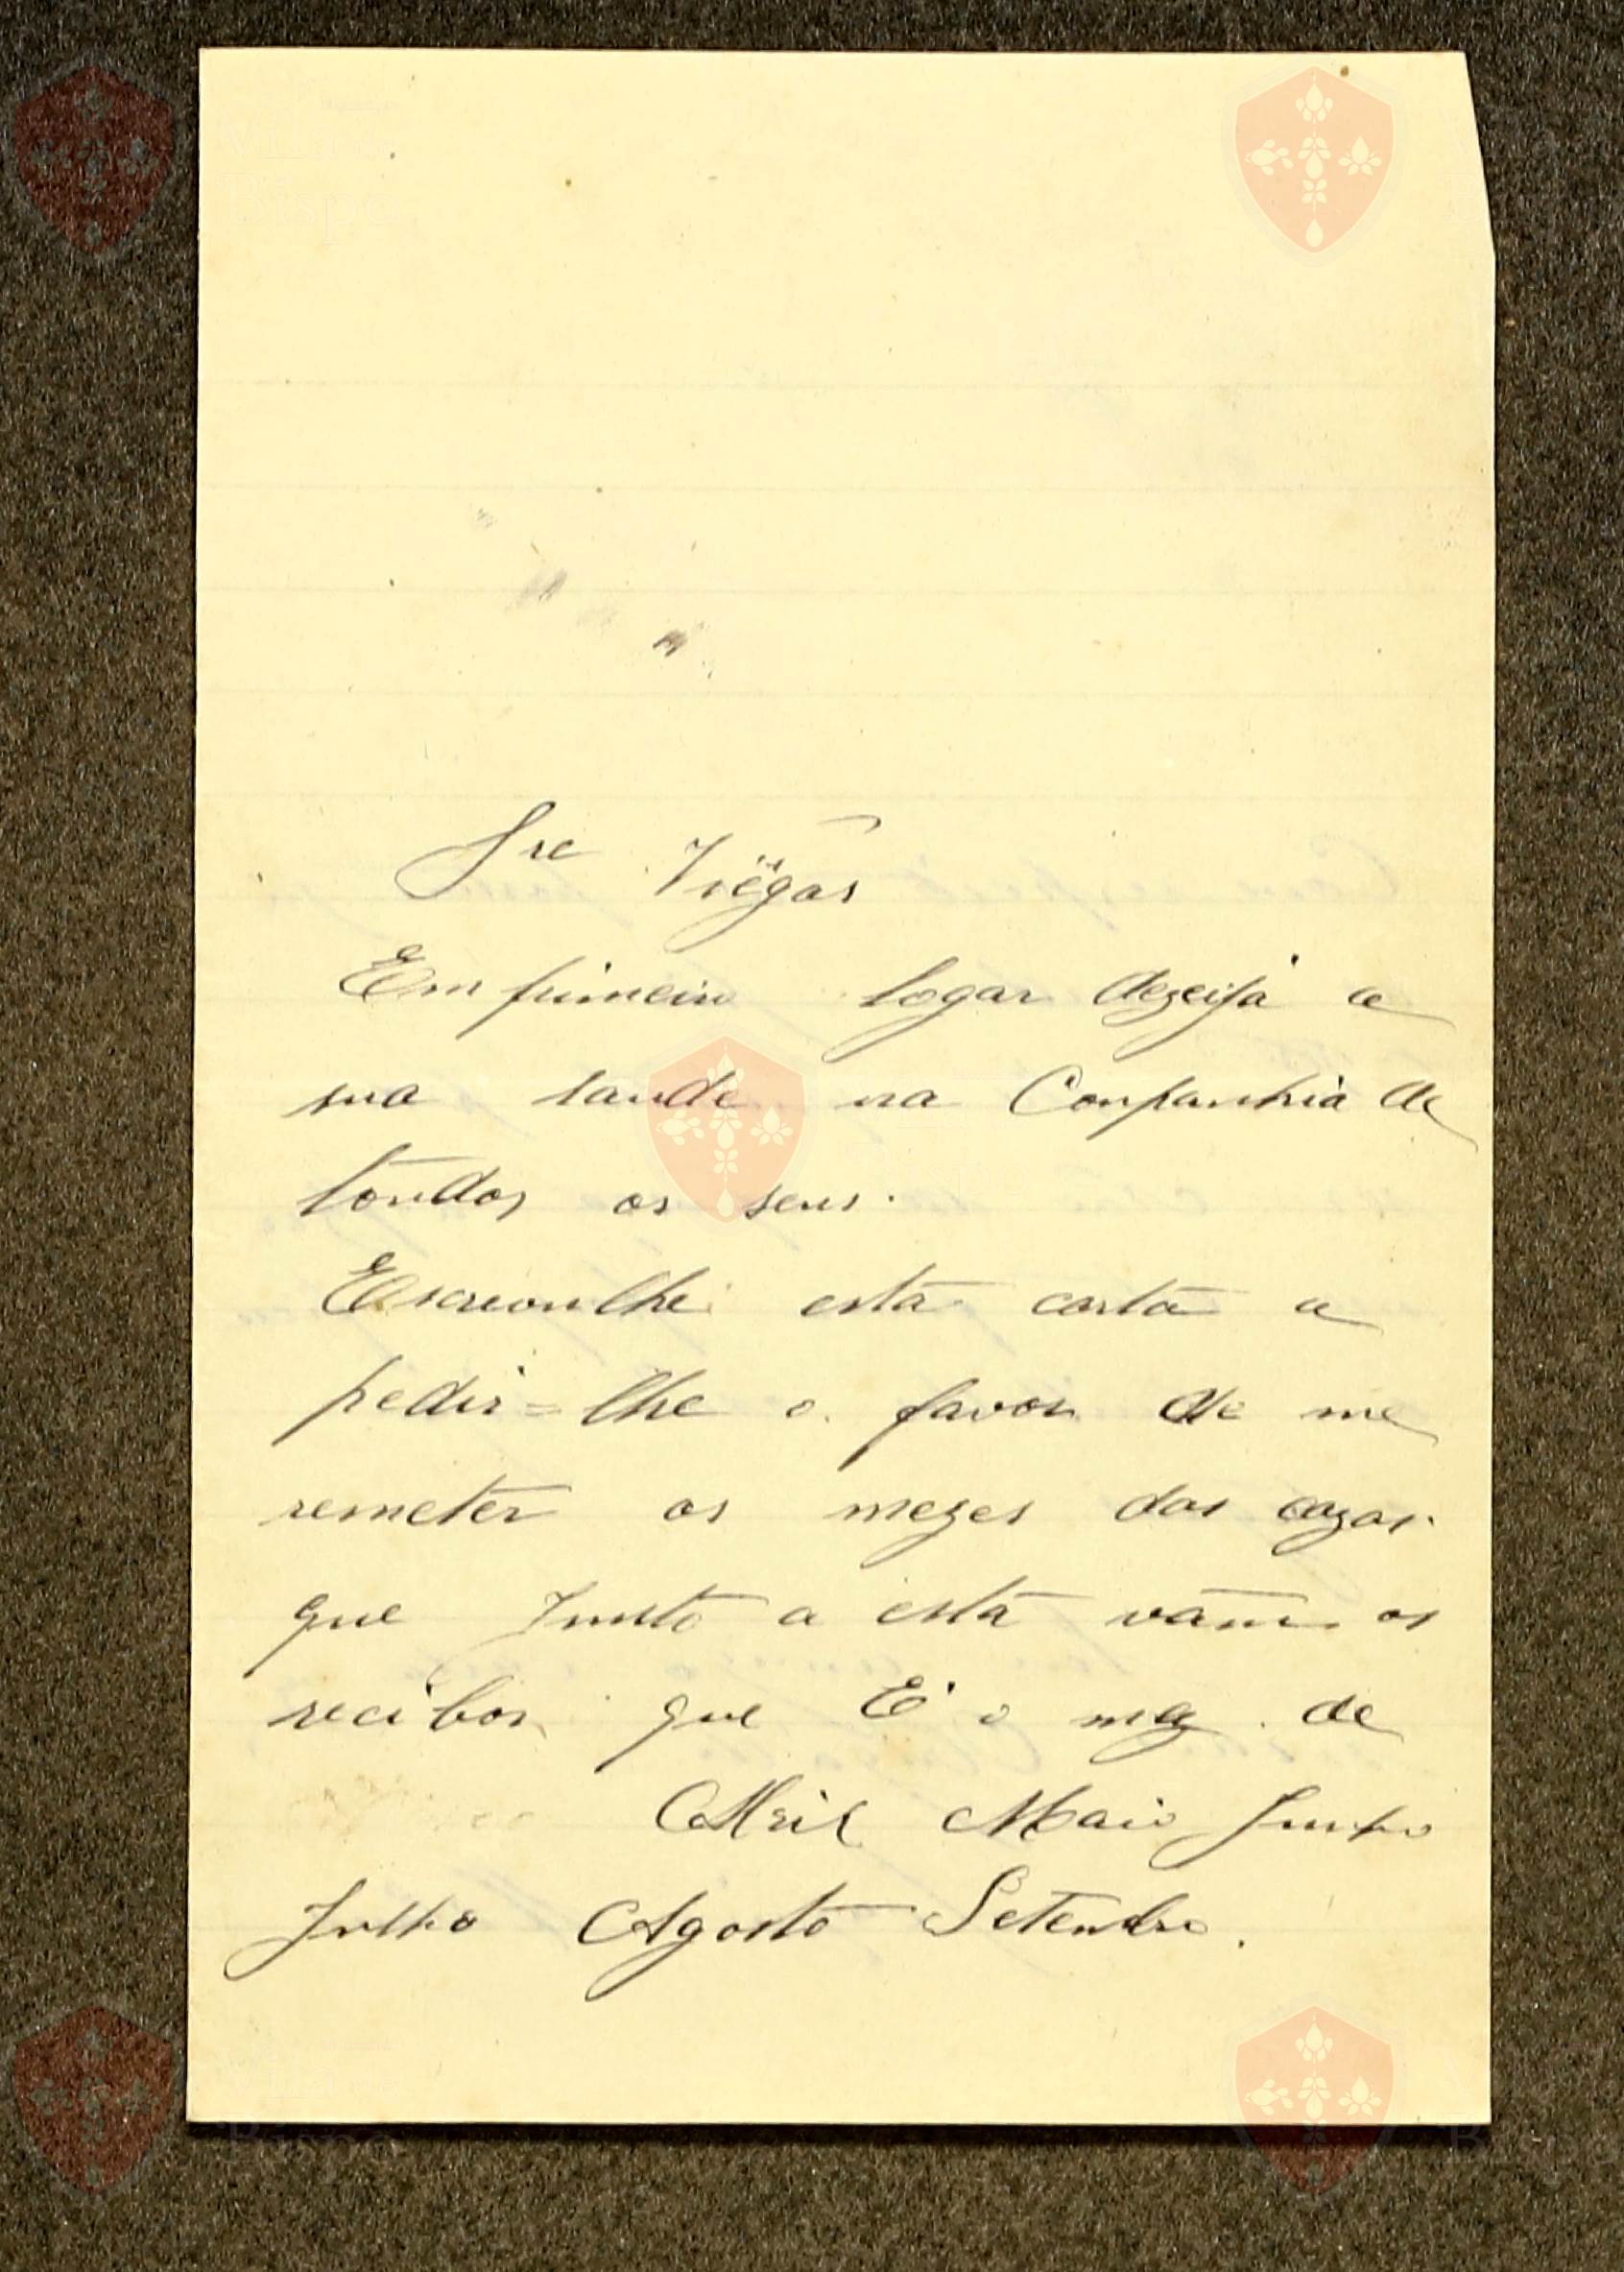 Sre Viegas
Em primeiro logar dezeija a
sua saude na Companhia de
toudos os seus.
Escrevulhe esta carta a
pedir=lhe o favor de me
remeter os mezes das cazas.
que Junto a esta vam os
recibos que E' o mez de
Abril Maio Junho
Julho Agosto Setembro.